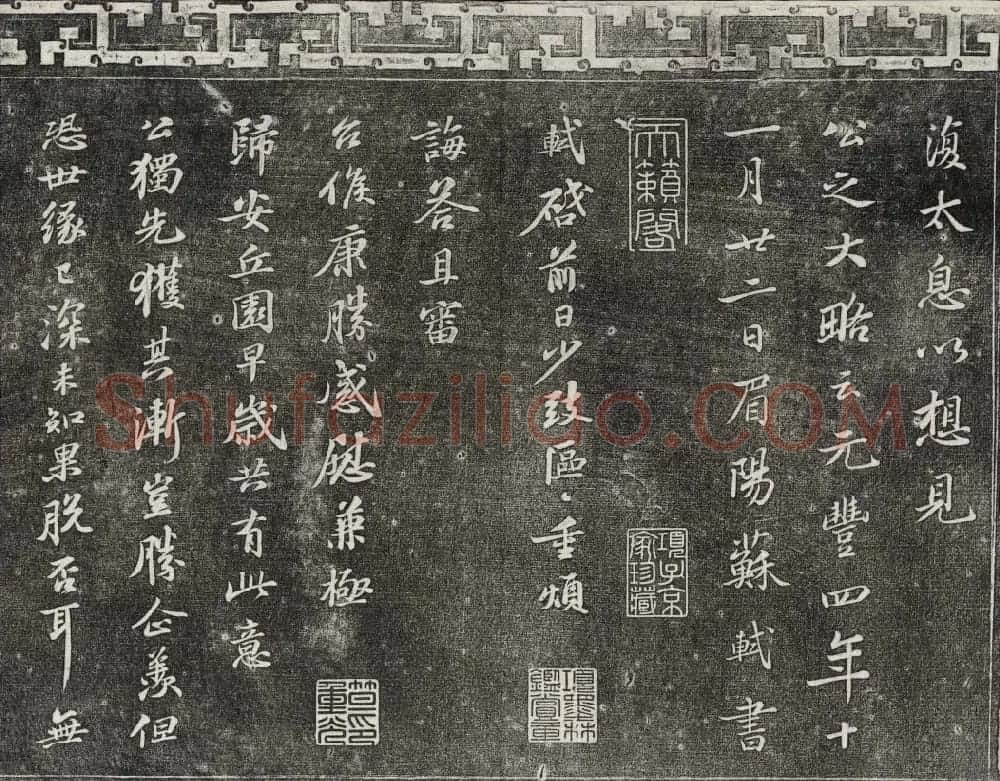 復太息以想見
公之大略云元豐四年十
一月廿二日眉陽蘇軾書
天籟閣
項子京家珍藏
軾啓前日少致區〻重煩
誨答且審
台候康勝感慰兼極
歸安丘園早歲共有此意
公獨先獲其漸豈勝企羨但
恐世緣已深未知果脫否耳無
項墨林鑑賞章
Shufaziliao.COM